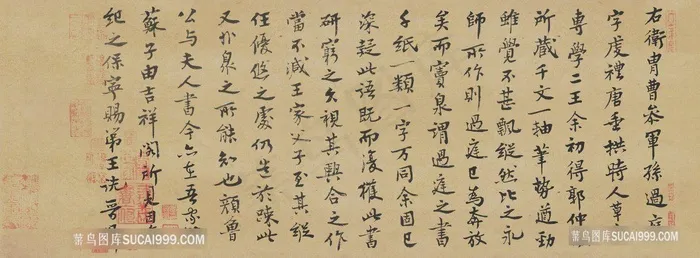 右衛胄曹參軍孫過庭
字虔禮唐垂拱時人草
專學二王余初得郭仲
所藏千文一軸筆勢遒勁
雖覺不甚飄縱然比之永
師所作則過庭已為奔放
矣而竇臮謂過庭之書
千紙一類一字万同余固已
深疑此語既而復獲此書
研窮之久視其興合之作
當不減王家父子至其縱
任優悠之處仍造於疎此
又非臮之所能知也顏魯
公与夫人書今亦在吾家
蘇子由吉祥閣所見
紀之保寧賜第王詵晉卿
菜鸟图库SUCAI999.COM
菜鸟图库SUCAI999.COM